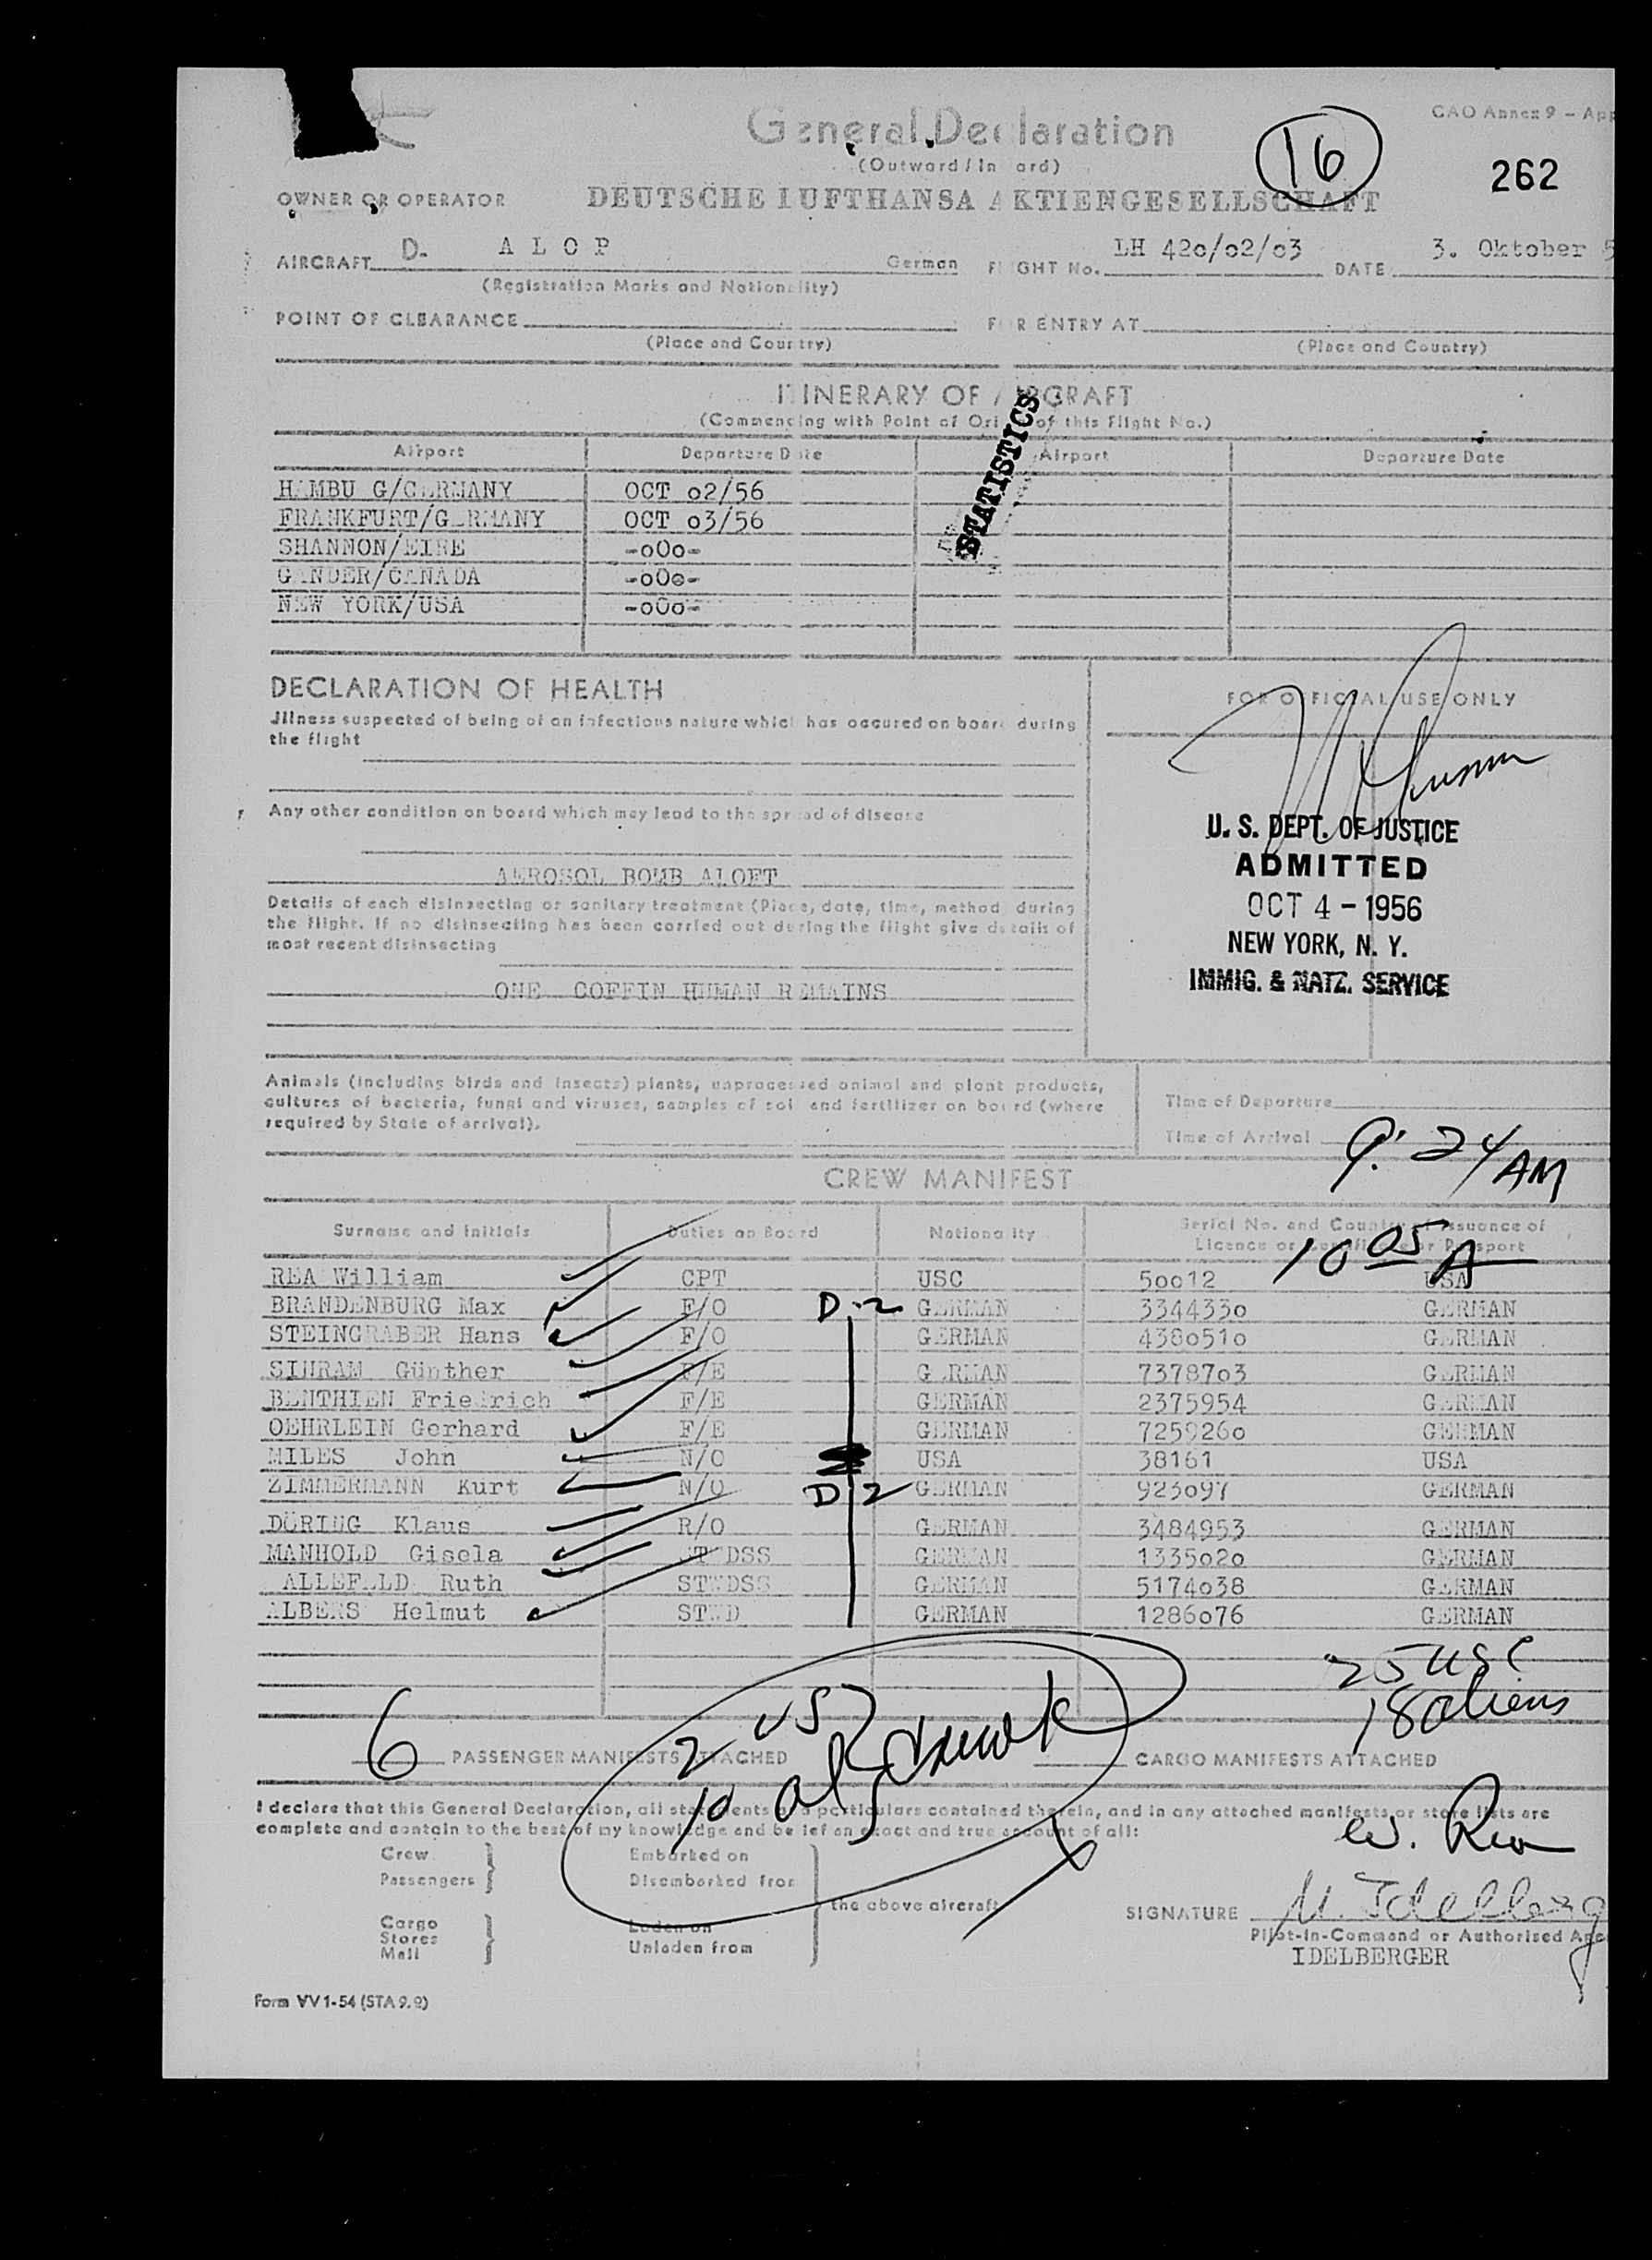 General Declaration
(Outward / In ard)
CAO Annex 9 - App
16
262
OWNER OR OPERATOR DEUTSCHE LUFTHANSA AKTIENGESELLSCHAFT
AIRCRAFT D- A L O P German FLIGHT No. LH 42o/o2/o3 DATE 3. Oktober 5
(Registration Marks and Nationality)
POINT OF CLEARANCE FOR ENTRY AT
(Place and Country) (Place and Country)
ITINERARY OF AIRCRAFT
(Commencing with Point of Origin of this Flight No.)
STATISTICS
Airport Departure Date Airport Departure Date
HAMBURG/GERMANY OCT o2/56
FRANKFURT/GERMANY OCT o3/56
SHANNON/EIRE -oOo-
GANDER/CANADA -oOo-
NEW YORK/USA -oOo-
DECLARATION OF HEALTH
Jllness suspected of being of an infectious nature which has occured on board during
the flight
Any other condition on board which may lead to the spread of disease
AEROSOL BOMB ALOFT
Details of each disinsecting or sanitary treatment (Place, date, time, method) during
the flight. If no disinsecting has been carried out during the flight give details of
most recent disinsecting
ONE COFFIN HUMAN REMAINS
FOR OFFICIAL USE ONLY
U. S. DEPT. OF JUSTICE
ADMITTED
OCT 4 - 1956
NEW YORK, N. Y.
IMMIG. & NATZ. SERVICE
Animals (including birds and insects) plants, unprocessed animal and plant products,
cultures of bacteria, fungi and viruses, samples of soil and fertilizer on board (where
required by State of arrival).
Time of Departure
Time of Arrival 9:24 AM
CREW MANIFEST
Surname and Initials Duties on Board Nationality Serial No. and Country of Issuance of
Licence or Certificate or Passport
10 05 A
REA William CPT USC 5oo12 USA
BRANDENBURG Max F/O D-2 GERMAN 334433o GERMAN
STEINGRABER Hans F/O GERMAN 438o51o GERMAN
SINRAM Günther F/E GERMAN 73787o3 GERMAN
BENTHIEN Friedrich F/E GERMAN 2375954 GERMAN
OEHRLEIN Gerhard F/E GERMAN 725926o GERMAN
MILES John N/O USA 38161 USA
ZIMMERMANN Kurt N/O D-2 GERMAN 923o97 GERMAN
DÖRING Klaus R/O GERMAN 3484953 GERMAN
MANHOLD Gisela STWDSS GERMAN 1335o2o GERMAN
ALLEFELD Ruth STWDSS GERMAN 5174o38 GERMAN
ALBERS Helmut STWD GERMAN 1286o76 GERMAN
25 USC
18 aliens
2 US
10 al
6 PASSENGER MANIFESTS ATTACHED CARGO MANIFESTS ATTACHED
I declare that this General Declaration, all statements and particulars contained therein, and in any attached manifests or store lists are
complete and contain to the best of my knowledge and belief an exact and true account of all:
W. Rea
Crew Embarked on
Passengers Disembarked from
the above aircraft
Cargo Laden on
Stores
Mail Unladen from
SIGNATURE M. Idelberg
Pilot-in-Command or Authorised Age
IDELBERGER
Form VV 1-54 (STA 9.9)